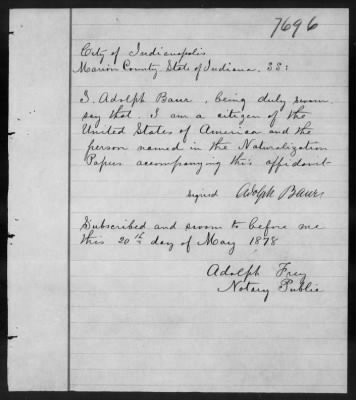 7696
City of Indianapolis
Marion County State of Indiana. SS:
I. Adolph Baur, being duly sworn
say that I am a citizen of the
United States of America and the
person named in the Naturalization
Papers accompanying this affidavit
signed Adolph Baur
Subscribed and sworn to before me
this 20th day of May 1878
Adolph Frey
Notary Public